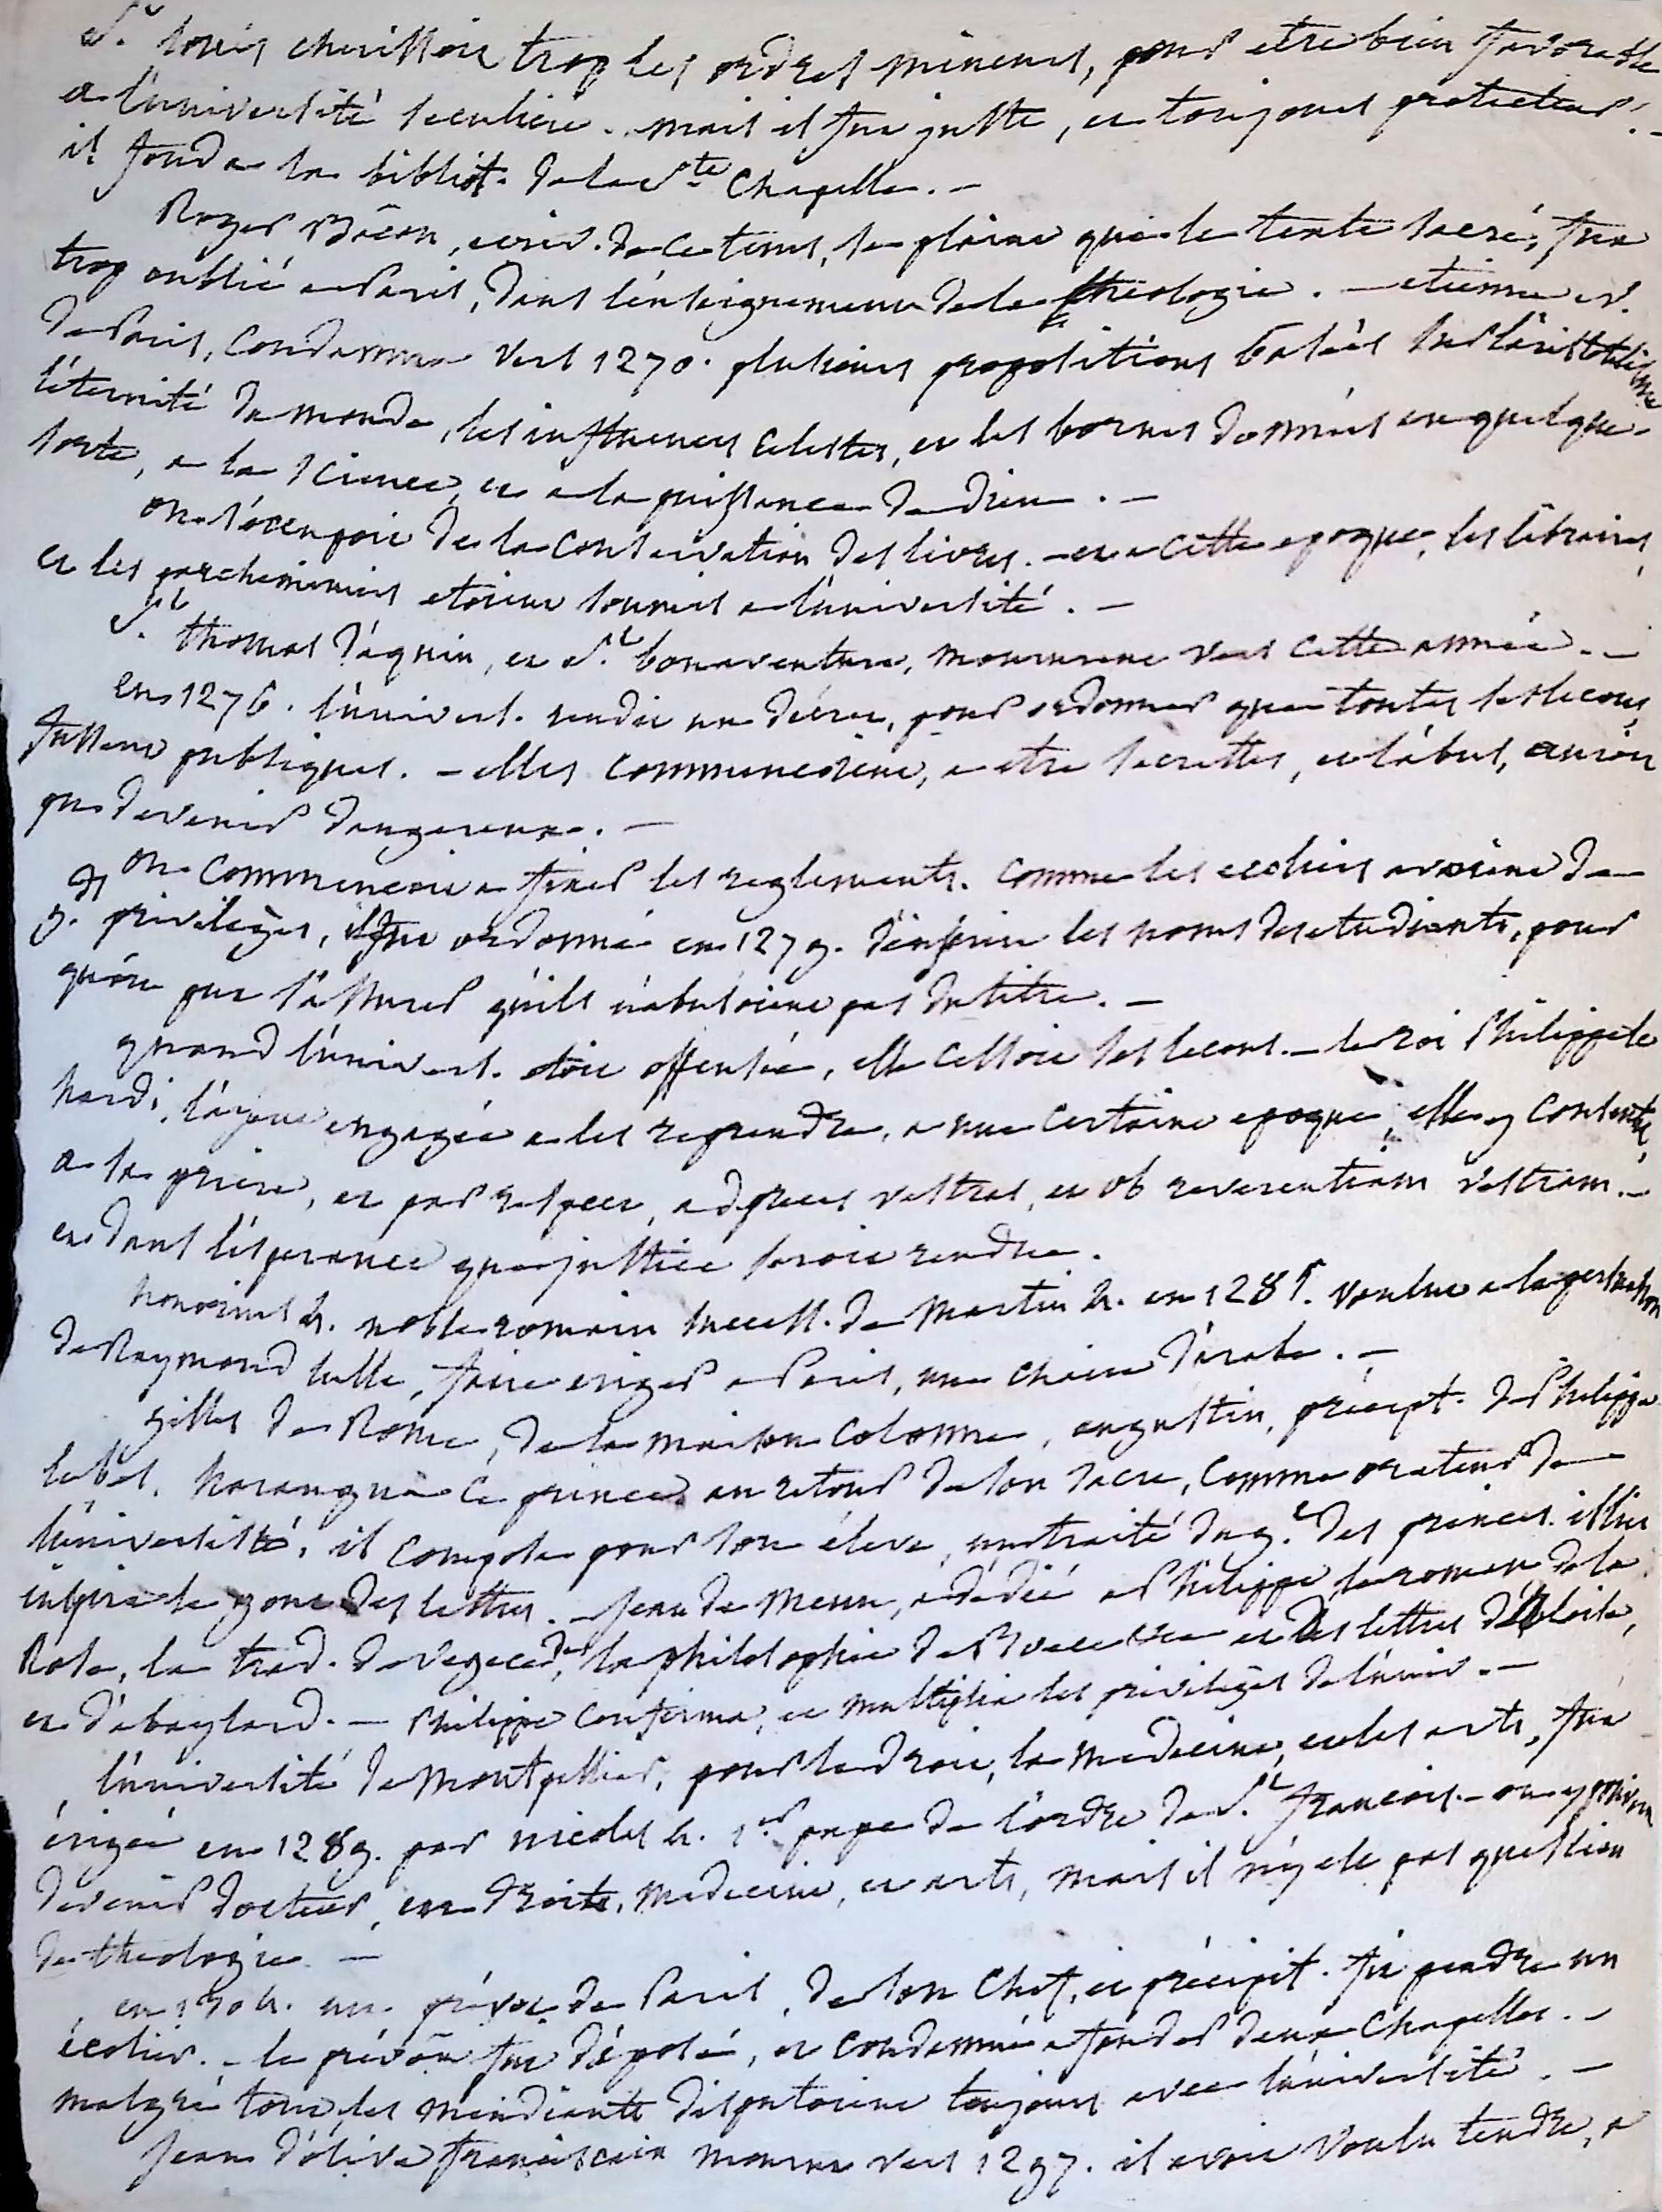 St. Louis cherissoit trop les ordres mineurs, pour etre bien favorable
a l'université seculiere. mais il fut juste, et toujours protecteur. -
il fonda la bibliot. de la Ste Chapelle. -
Roger Bacon, ecriv. de ce tems, se plaint que le texte sacré, fut
trop oublié a Paris, dans l'enseignement de la theologie. - etienne ev.
de Paris, condamna vers 1270. plusieurs propositions basées sur l'aristotelisme
l'éternité du monde, les influences celestes, et les bornes données en quelque
sorte, a la science, et a la puissance de dieu. -
on s'occupoit de la conservation des livres. - et a cette epoque, les libraires,
et les parcheminiers etoient soumis a l'université. -
St. thomas d'aquin, et St. bonaventure, moururent vers cette année. -
en 1276. l'univers. rendit un décret, pour ordonner que toutes les lecons,
fussent publiques. - elles commencoient, a etre secrettes, et l'abus, auroit
pu devenir dangereux. -
on commencoit a fixer les reglements. comme les ecoliers avoient de
gds privilèges, il fut ordonné en 1279. d'inscrire les noms des etudiants, pour
qu'on put s'assurer qu'ils n'abusoient pas du titre. -
quand l'univers. etoit offensée, elle cessoit ses lecons. - le roi Philippe le
hardi, l'ayant engagée a les reprendre, a une certaine epoque, elle y consentit,
a sa priere, et par respect, ad preces vestras, et ob reverentiam vestram. -
et dans l'esperance que justice seroit rendue.
honorius 4. noble romain success. de Martin 4. en 1285. voulut a la persuasion
de Raymond lulle, faire eriger a Paris, une chaire d'arabe. -
gilles de Rome, de la maison Colonne, augustin, précept. de Philippe
le bel, harangua ce prince au retour de son sacre, comme orateur de
l'université, il composa pour son élève, un traité du gt des princes. il lui
inspira le gout des lettres. - Jean de Meun, a dédié a Philippe, le roman de la
Rose, la trad. de vegece, de la philosophie de Boece et des lettres d'Eloise,
et d'abaylard. - Philippe confirma, et multiplia les privilèges de l'univ. -
l'université de Montpellier, pour le droit, la medecine, et les arts, fut
érigée en 1289. par nicolas 4. 1er pape de l'ordre de St. françois. - on y pouvoit
devenir docteur, en droit, medecine, et arts, mais il n'y ele pas question
de theologie. -
en 1304. un prévot de Paris, de son chef, et précipit. fit pendre un
écolier. - le prévôt fut déposé, et condamné a fonder deux chapelles. -
malgré tout, les mendiants disputoient toujours avec l'université. -
Jean d'olive franciscain mourut vers 1297. il avoit voulu tendre, a